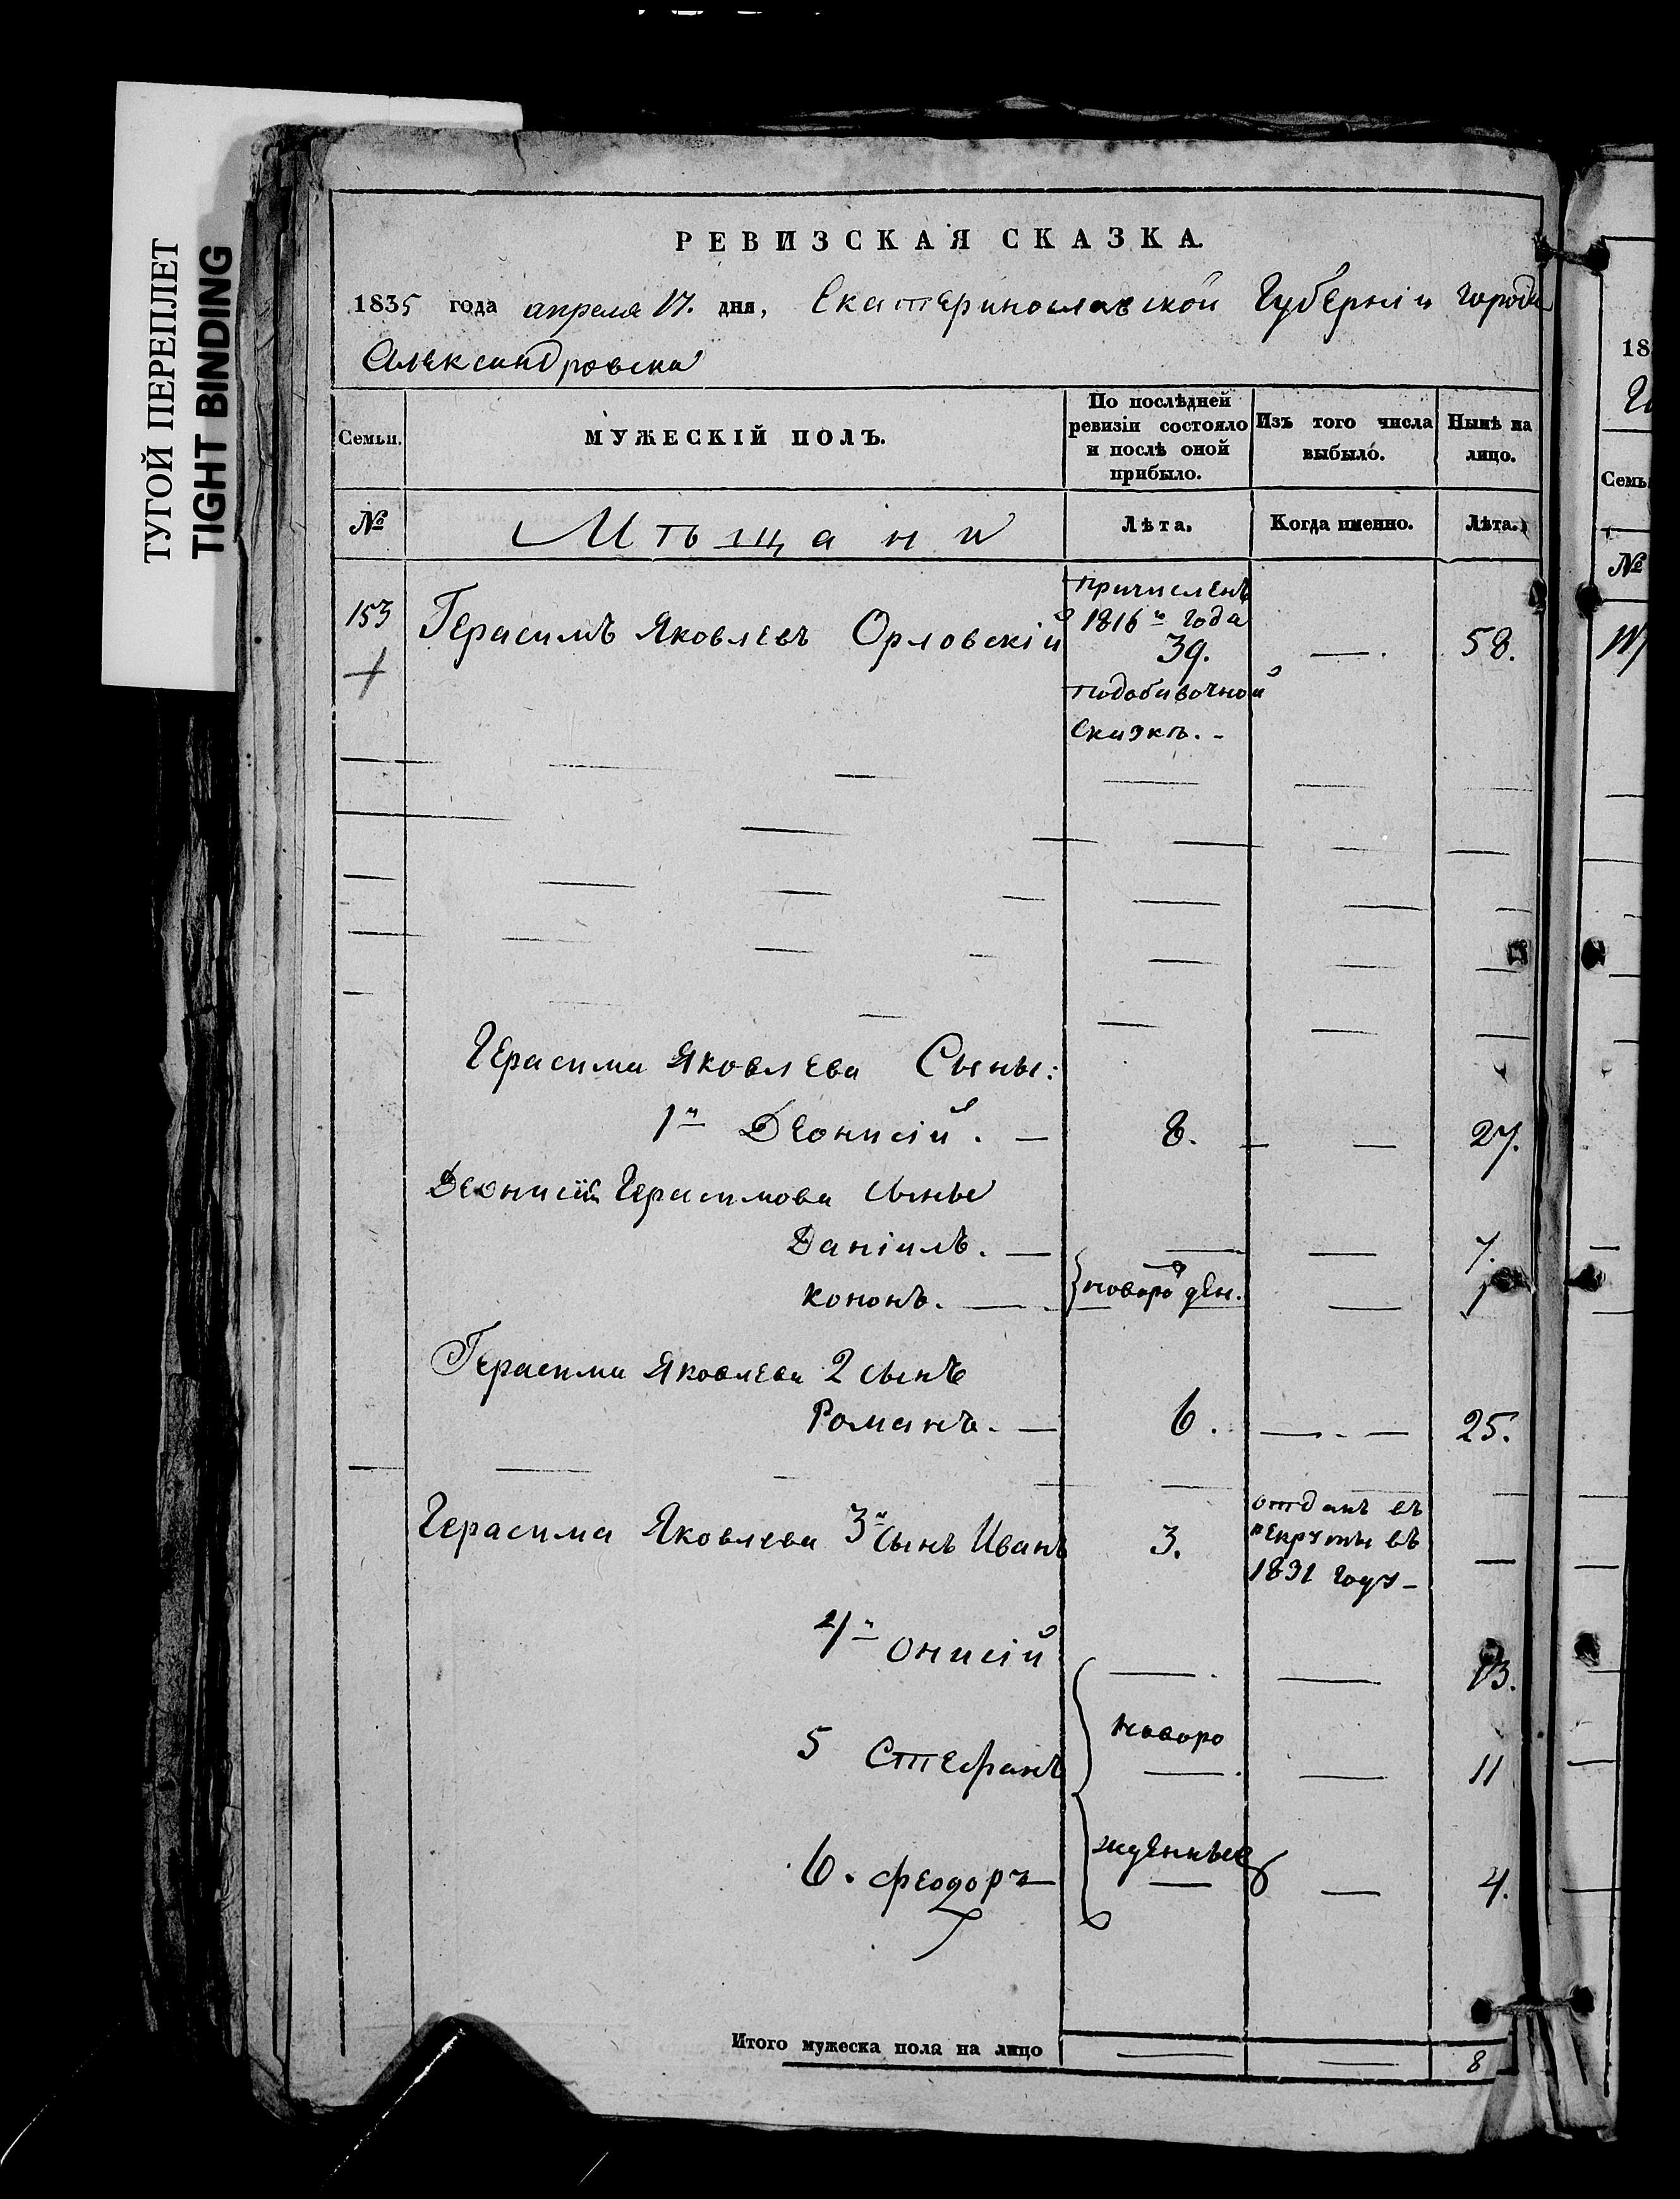 ТУГОЙ ПЕРЕПЛЕТ
TIGHT BINDING
РЕВИЗСКАЯ СКАЗКА.
1835 года апреля 17. дня, Екатеринославской Губернiи города
Александровска
Семьи. МУЖЕСКIЙ ПОЛЪ. По послѣдней ревизiи состояло и послѣ оной прибыло. Изъ того числа выбыло. Нынѣ на лицо.
№ Мѣщани Лѣта. Когда именно. Лѣта.
153 Герасимъ Яковлевъ Орловскiй причисленъ 1816го года 39. — 58.
подобавочной
сказкѣ. -
Герасима Яковлева Сыны:
1й Деонисiй. — 8. — — 27.
Деонисiя Герасимова сыны
Данiилъ. — — — 7.
кононъ. — новорожден. — 1
Герасима Яковлева 2 сынъ
Романъ. — 6. — . — 25.
Герасима Яковлева 3й сынъ Иванъ 3. отданъ въ рекруты въ 1831 году — —
4й онисiй — . — 13.
5 Стефанъ новоро — . — 11
6. феодоръ — жденные — — 4.
Итого мужеска пола на лицо — — 8
18
Семьи
№